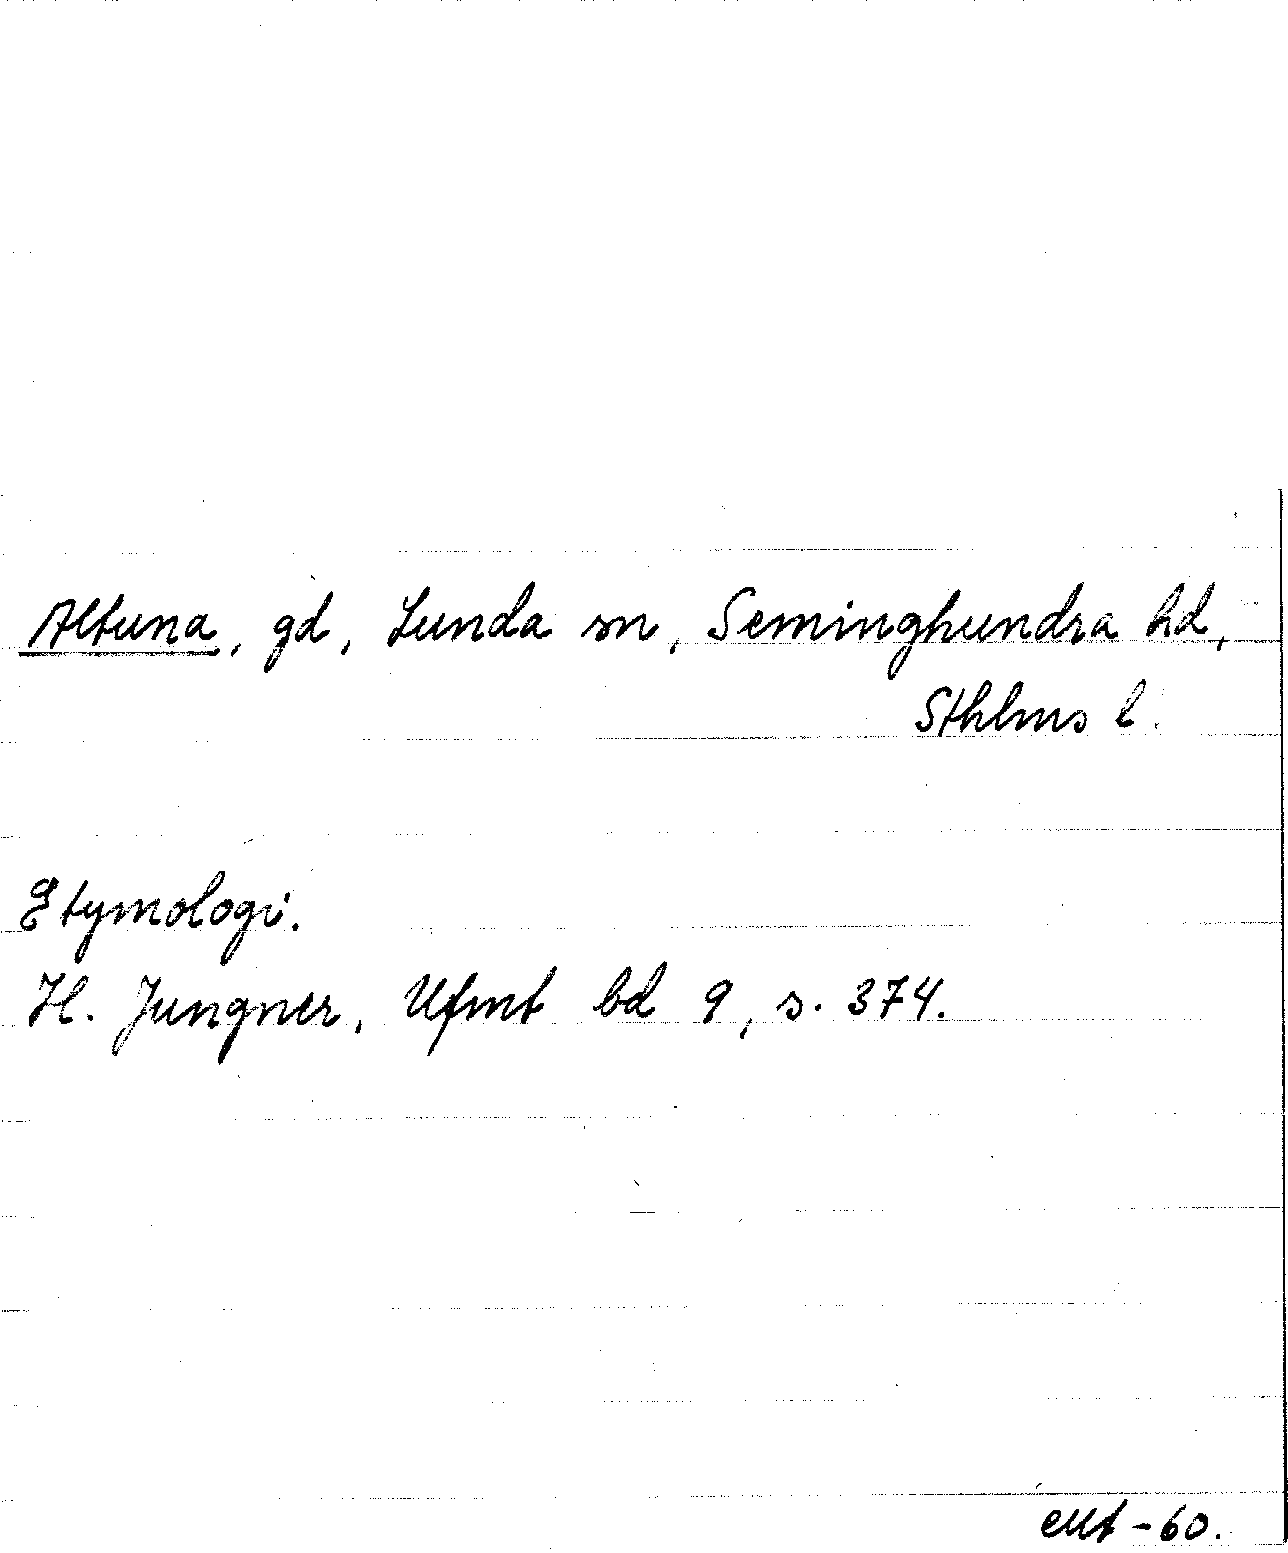 Altuna, gd, Lunda sn, Seminghundra hd,
Sthlms l.
Etymologi.
H. Jungner, Ufmt bd 9, s. 374.
-60.